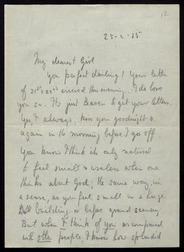 25-2-35
My dearest Girl
You perfect darling! Your letter
of 21st arrived this morning. I do love
you so. It's just Heaven to get your letters.
I always kiss you goodnight &
again in the morning before I go off.
You know I think it's only natural
to feel small & useless when one
thinks about God; the same way, in
a sense, as you feel small in a huge
building, or before grand scenery
But when I think of you as compared
with other people I know how splendid